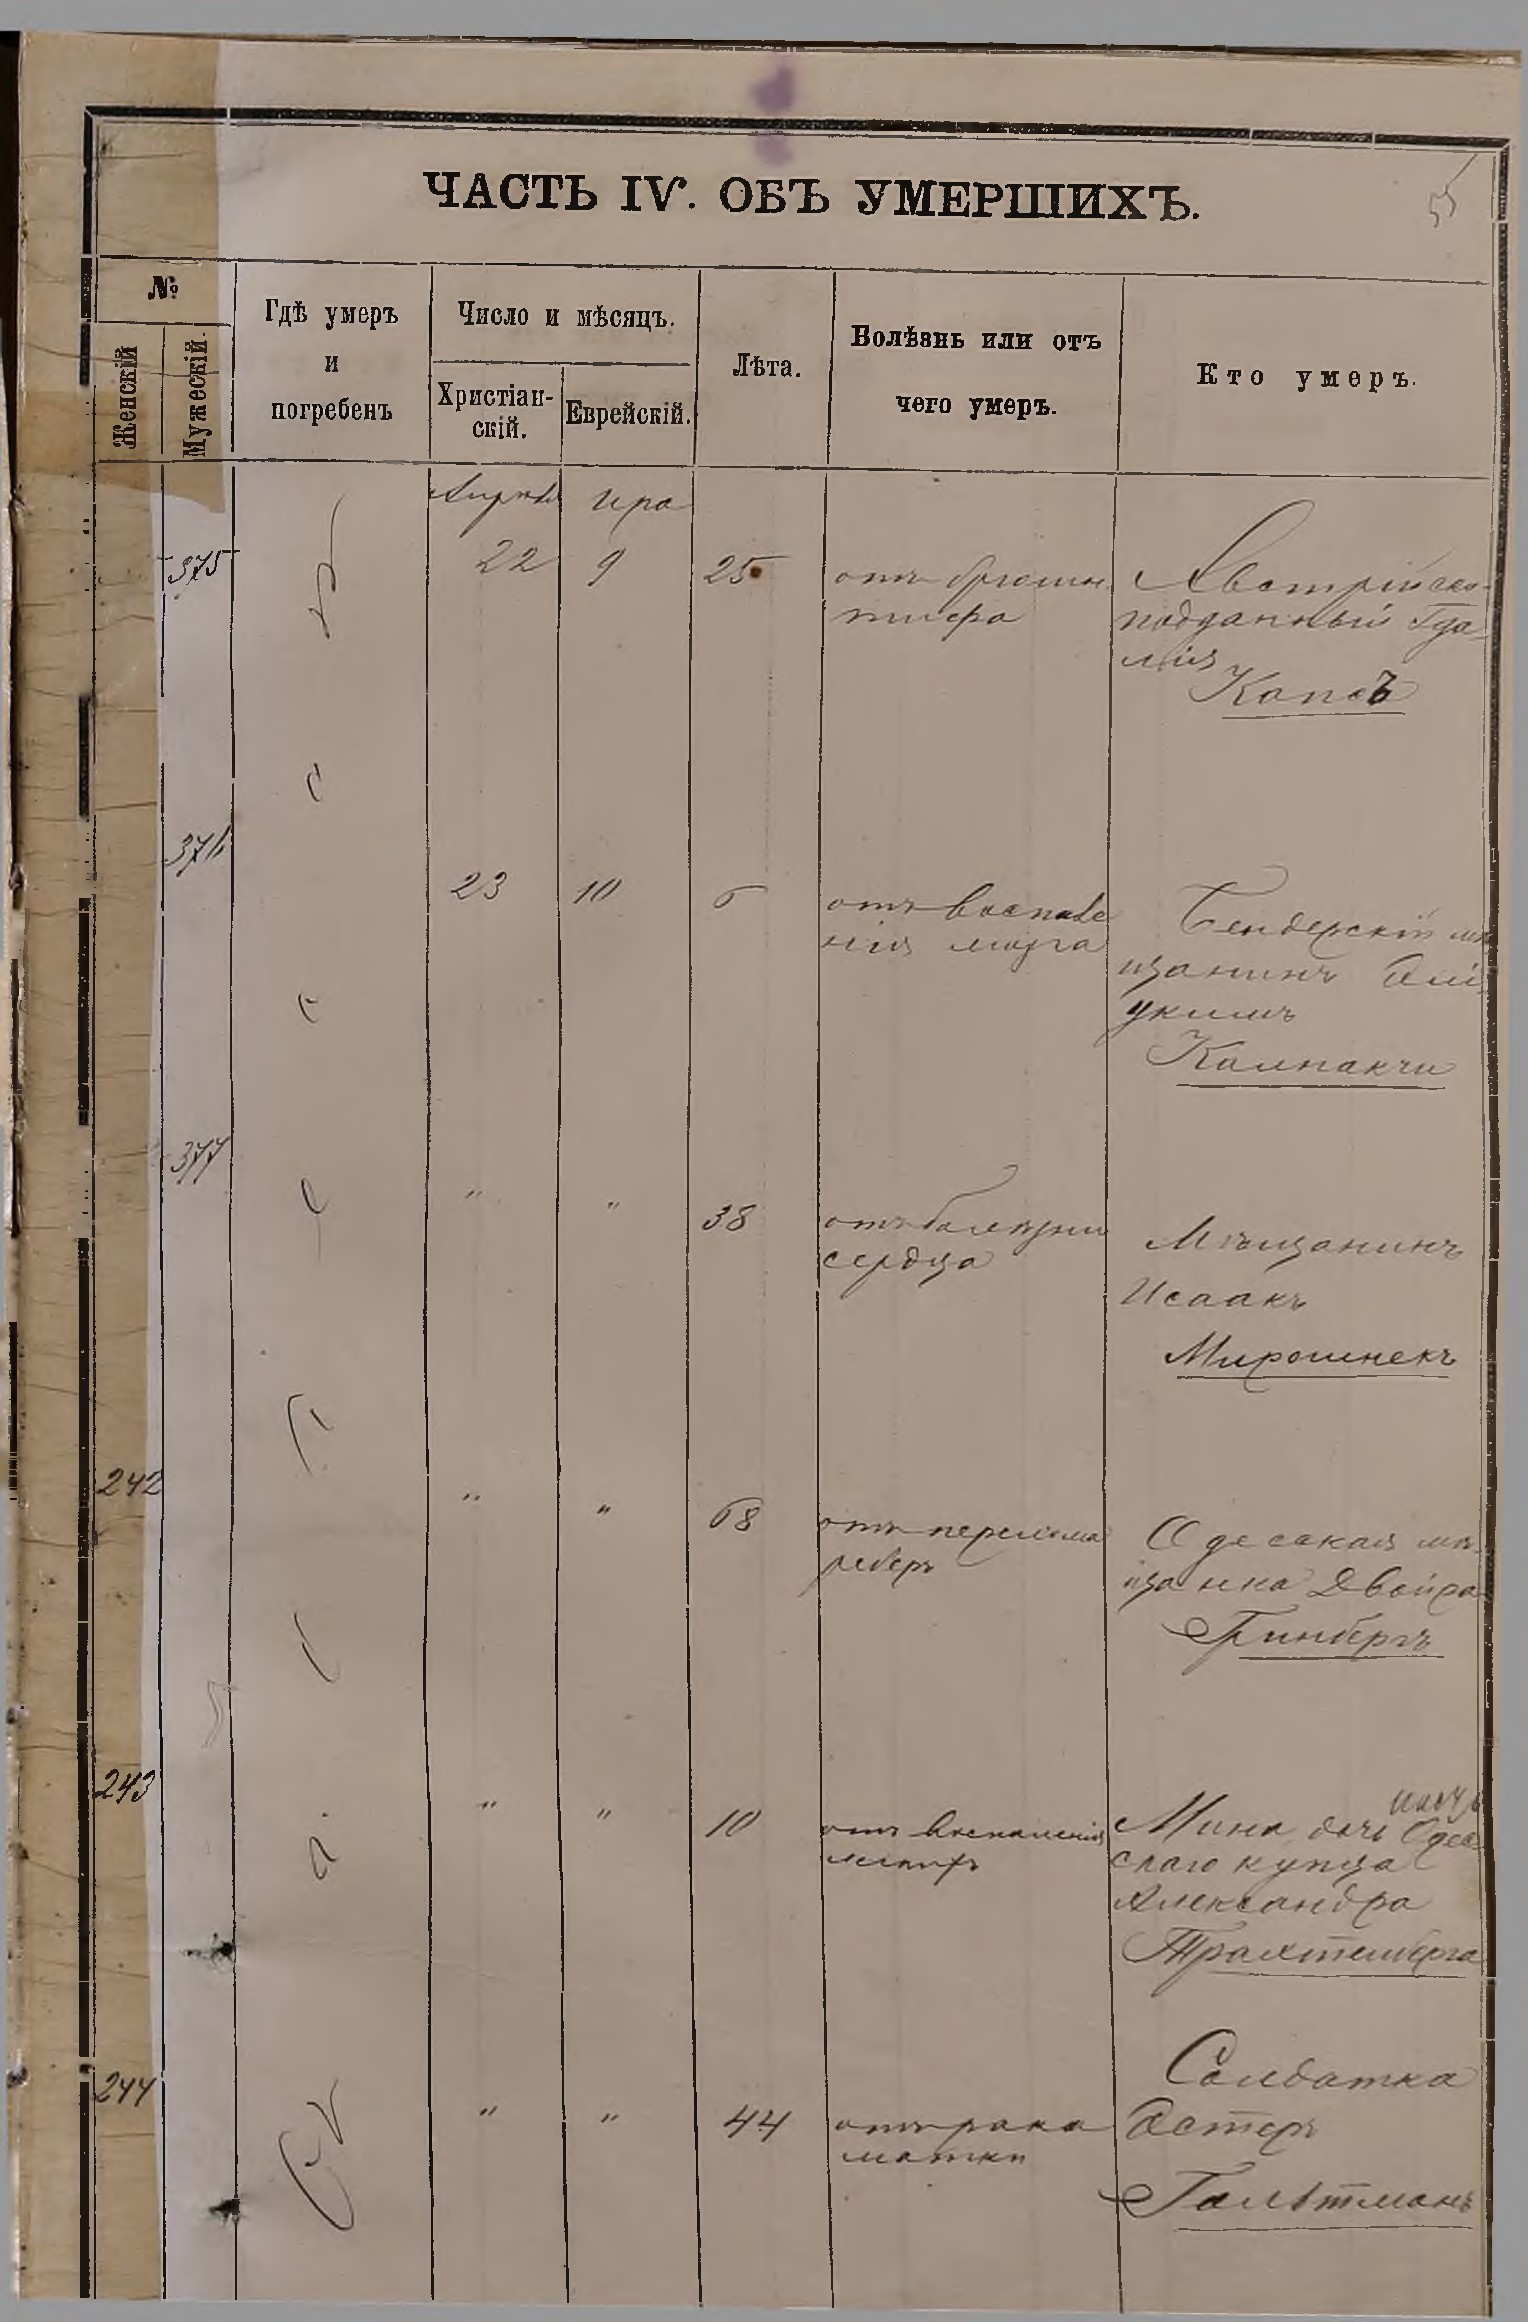 55
ЧАСТЬ IV. ОБЪ УМЕРШИХЪ.
№
Женскій
Мужескій.
Гдѣ умеръ
и
погребенъ
Число и мѣсяцъ.
Христіан-
скій.
Еврейскій.
Лѣта.
Болѣзнь или отъ
чего умеръ.
Кто умеръ.
Апрѣль
Ира
375
22
9
25
отъ брюшн.
тифа
Австрійско-
подданный Гда-
лія
Капсъ
376
23
10
6
отъ воспале
нія мозга
Бендерскій мѣ
щанинъ Элі-
укимъ
Калпакчи
377
"
"
38
отъ болѣзни
сердца
Мѣщанинъ
Исаакъ
Мирошнекъ
242
"
"
68
отъ перелома
реберъ
Одесская мѣ-
щанка Двойра
Гринбергъ
243
"
"
10
отъ воспаленія
Мина дочь Одес
скаго купца
Александра
Трахтенберга
244
"
"
44
отъ рака
матки
Солдатка
Эстеръ
Гальтманъ